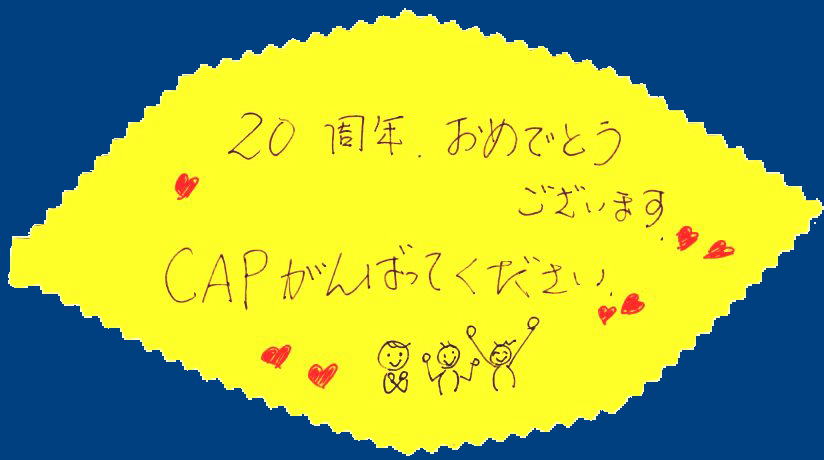 20周年.おめでとう
ございます.
CAPがんばってください.